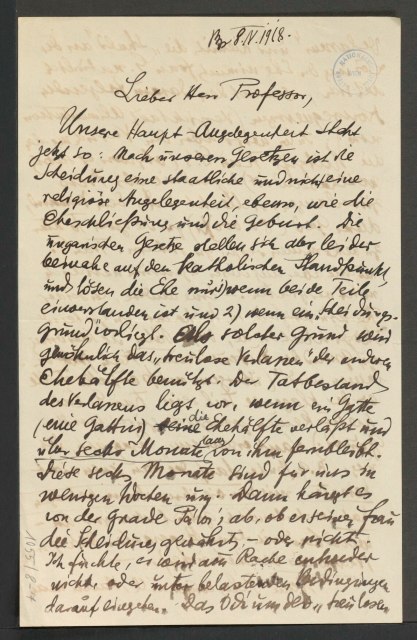 Bp 8. IV. 1918.
Lieber Herr Professor,
Unsere Haupt-Angelegenheit steht
jetzt so: Nach unseren Gesetzen ist die
Scheidung eine staatliche und nicht eine
religiöse Angelegenheit, ebenso, wie die
Eheschließung und die Geburt. Die
ungarischen Gesetze stellen sich aber leider
beinahe auf den katholischen Standpunkt
und lösen die Ehe nur 1) wenn beide Teile
einverstanden ist und 2) wenn ein „Scheidungs-
grund" vorliegt. Als solcher Grund wird
gewöhnlich das „treulose Verlassen" der anderen
Ehehälfte benützt. Der Tatbestand
des Verlassens liegt vor, wenn ein Gatte
(eine Gattin) die Ehehälfte verläßt und
über sechs Monate lang von ihm fernbleibt.
Diese sechs Monate sind für uns in
wenigen Wochen um. Dann hängt es
von der Gnade ab, ob er seiner Frau
die Scheidung gewährt, – oder nicht.
Ich fürchte, er wird aus Rache entweder
nicht, oder unter belastenden Bedingungen
darauf eingehen. Das Odium des „treulosen